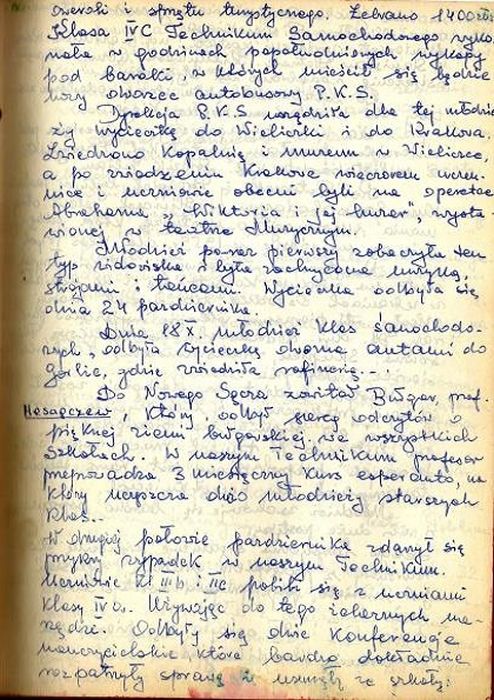 i sprzętu turystycznego. Zebrano 1400 zł.
Klasa IV C Technikum Samochodowego wyko-
nała w godzinach popołudniowych wykopy
pod baraki, w których mieścił się będzie
nowy dworzec autobusowy P.K.S.
Dyrekcja P.K.S. urządziła dla tej młodzie-
ży wycieczkę do Wieliczki i do Krakowa.
Zwiedzono Kopalnię i muzeum w Wieliczce,
a po zwiedzeniu Krakowa wieczorem uczen-
nice i uczniowie obecni byli na operetce
Abrahama „Wiktoria i jej huzar", wysta-
wionej w teatrze Muzycznym.
Młodzież poraz pierwszy zobaczyła ten
typ widowiska i była zachwycona muzyką,
strojami i tańcami. Wycieczka odbyła się
dnia 24 października.
Dnia 18 X. młodzież klas samochodo-
wych, odbyła wycieczkę dwoma autami do
Gorlic, gdzie zwiedziła rafinerię...
Do Nowego Sącza zawitał Bułgar, prof.
Mesapczew, który odbył szereg odczytów o
pięknej ziemi bułgarskiej we wszystkich
szkołach. W naszym Technikum profesor
przeprowadza 3 miesięczny kurs esperanto, na
który uczęszcza dużo młodzieży starszych
klas..
W drugiej połowie października zdarzył się
przykry wypadek w naszym Technikum.
Uczniowie kl III b i II c pobili się z uczniami
klasy IV a. Używając do tego żelaznych na-
rzędzi. Odbyły się dwie Konferencje
nauczycielskie które bardzo dokładnie
rozpatrzyły sprawę i usunęły ze szkoły: